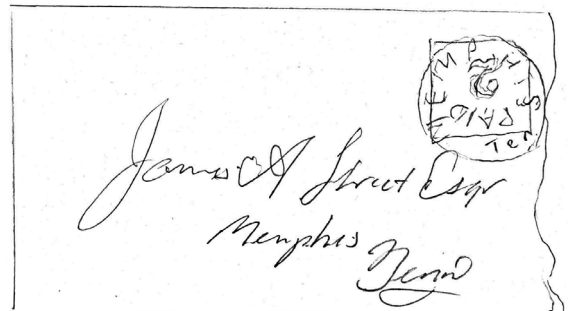 MEMPHIS
PAID
Ten
James A Street Esqr
Memphis
Tenn